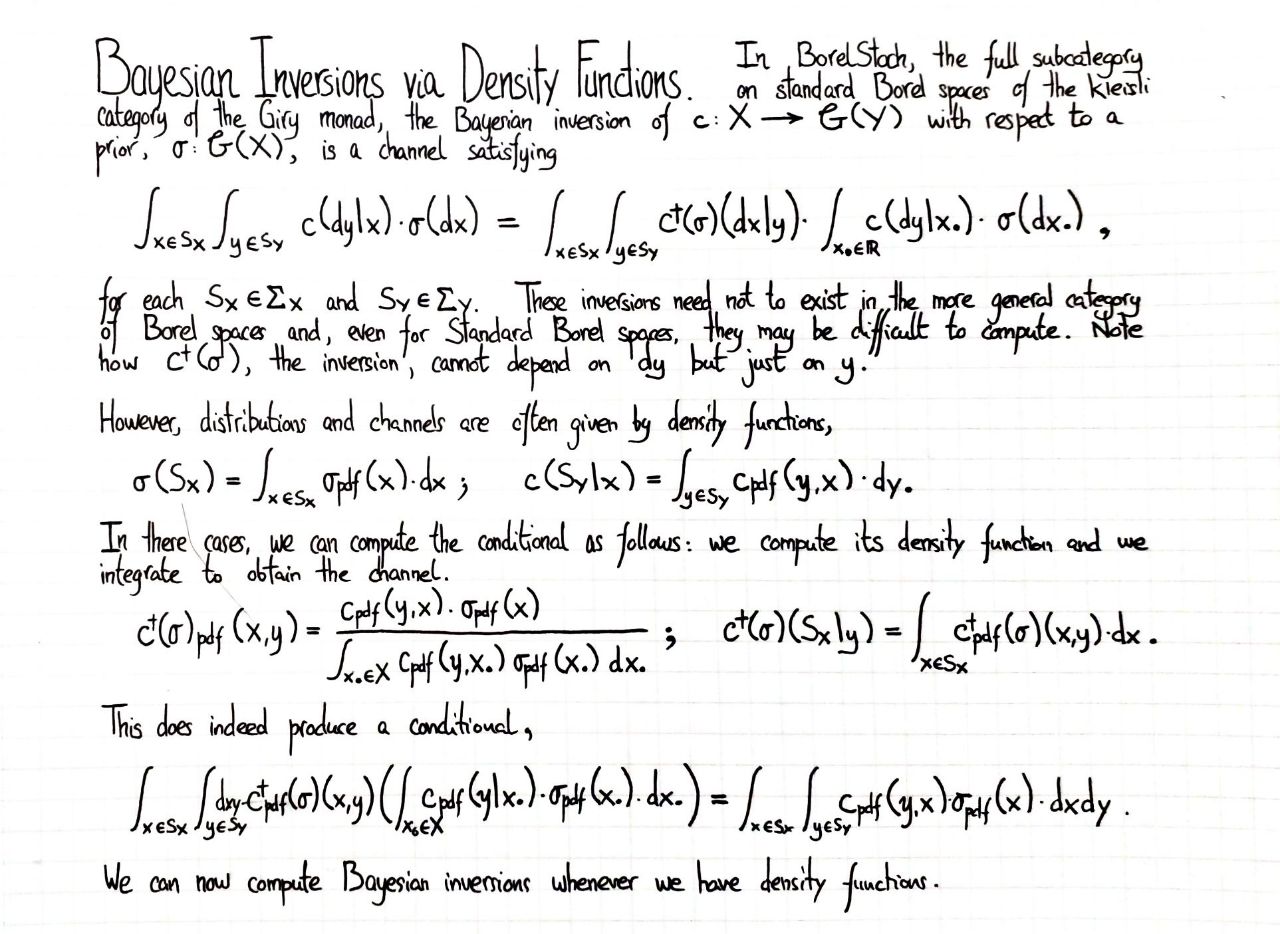 Bayesian Inversions via Density Functions. In BorelStoch, the full subcategory
on standard Borel spaces of the Kleisli
category of the Giry monad, the Bayesian inversion of c: X → G(Y) with respect to a
prior, σ: G(X), is a channel satisfying
∫x∈Sx ∫y∈Sy c(dy|x)·σ(dx) = ∫x∈Sx ∫y∈Sy c†(σ)(dx|y)· ∫x₀∈ℝ c(dy|x₀)· σ(dx₀) ,
for each Sx ∈ Σx and Sy ∈ Σy. These inversions need not to exist in the more general category
of Borel spaces and, even for Standard Borel spaces, they may be difficult to compute. Note
how c†(σ), the inversion, cannot depend on dy but just on y.
However, distributions and channels are often given by density functions,
σ(Sx) = ∫x∈Sx σpdf(x)·dx ; c(Sy|x) = ∫y∈Sy cpdf(y,x)·dy.
In there cases, we can compute the conditional as follows: we compute its density function and we
integrate to obtain the channel.
c†(σ)pdf (x,y) = cpdf(y,x)· σpdf(x) / ∫x₀∈X cpdf(y,x₀) σpdf(x₀) dx₀ ; c†(σ)(Sx|y) = ∫x∈Sx c†pdf(σ)(x,y)·dx .
This does indeed produce a conditional,
∫x∈Sx ∫y∈Sy dxy·c†pdf(σ)(x,y)(∫x₀∈X cpdf(y|x₀)·σpdf(x₀)·dx₀) = ∫x∈Sx ∫y∈Sy cpdf(y,x)·σpdf(x)·dxdy .
We can now compute Bayesian inversions whenever we have density functions.